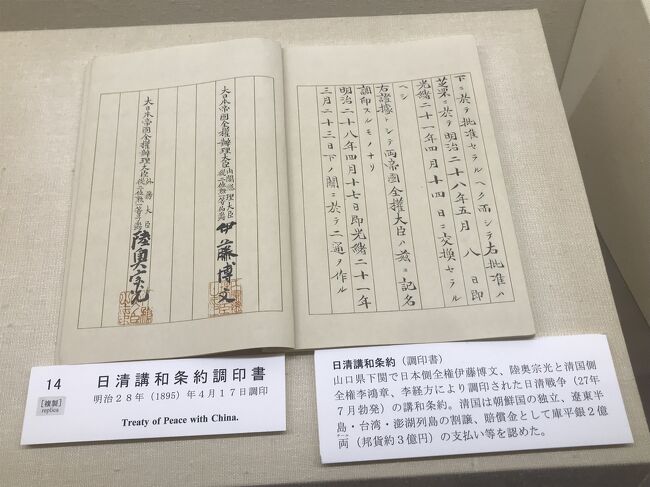 下ニ於テ批准セラルヘク而シテ右批准ハ
芝罘ニ於テ明治二十八年五月八日即
光緒二十一年四月十四日ニ交換セラル
ヘシ
右證據トシテ両帝國全權大臣ハ茲ニ記名
調印スルモノナリ
明治二十八年四月十七日即光緒二十一年
三月二十三日下ノ關ニ於テ二通ヲ作ル
大日本帝國全權辦理大臣内閣總理大臣從二位勲一等伯爵伊藤博文
大日本帝國全權辦理大臣外務大臣從二位勲一等子爵陸奥宗光
14 日清講和条約調印書
[複製]
replica
明治28年(1895)年4月17日調印
Treaty of Peace with China.
日清講和条約(調印書)
山口県下関で日本側全権伊藤博文、陸奥宗光と清国側
全権李鴻章、李経方により調印された日清戦争(27年
7月勃発)の講和条約。清国は朝鮮国の独立、遼東半
島・台湾・澎湖列島の割譲、賠償金として庫平銀2億
両(邦貨約3億円)の支払い等を認めた。